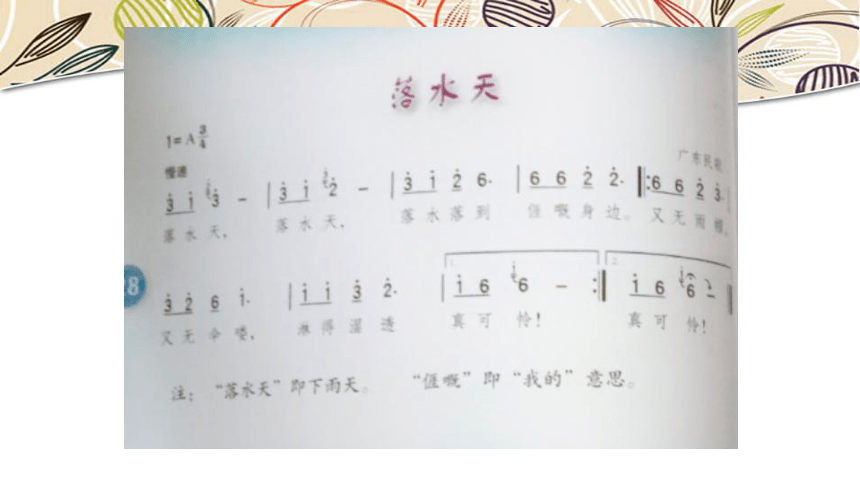 落水天
1=A 3/4
广东民歌
慢速
3̇ 1̇ 3̇ – | 3̇ 1̇ 2̇ – | 3̇ 1̇ 2̇ 6· | 6 6 2̇ 2̇· ‖: 6 6 2̇ 3̇· |
落水天， 落水天， 落水落到 𠊎嘅身边。 又无雨帽，
3̇ 2̇ 6 1̇· | 1̇ 1̇ 3̇ 2̇· | 1. 1̇ 6 6 – :‖ 2. 1̇ 6 6 – ‖
又无伞喽， 淋得湿透 真可怜！ 真可怜！
8
注：“落水天”即下雨天。 “𠊎嘅”即“我的”意思。